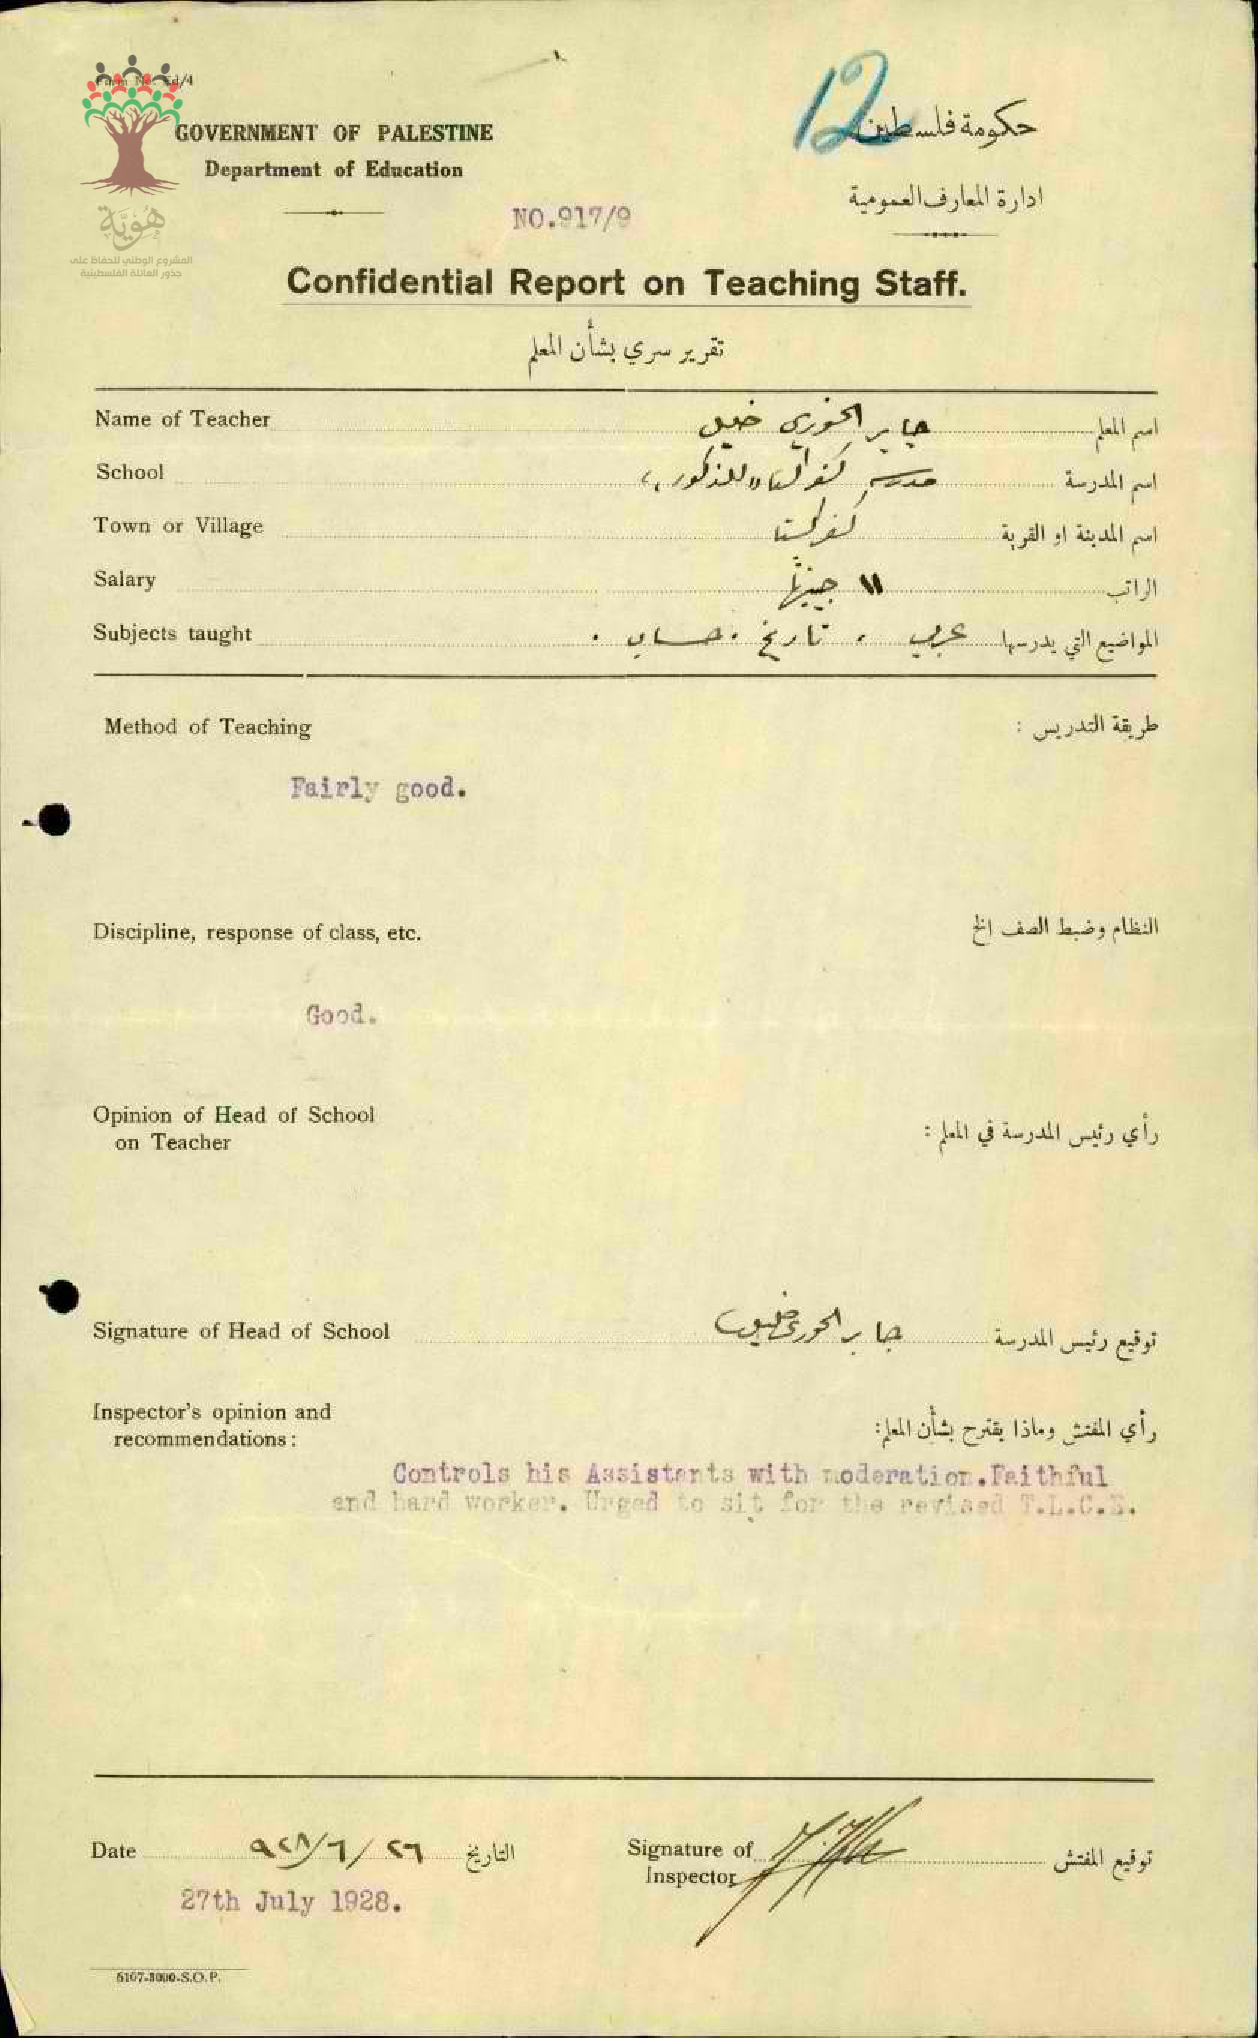 Form No. Ed/4
12
GOVERNMENT OF PALESTINE
حكومة فلسطين
Department of Education
ادارة المعارف العمومية
NO.917/9
هُويَّة
المشروع الوطني للحفاظ على
جذور العائلة الفلسطينية
Confidential Report on Teaching Staff.
تقرير سري بشأن المعلم
Name of Teacher جابر الخوري خليل اسم المعلم
School مدرسة للذكور اسم المدرسة
Town or Village اسم المدينة او القرية
Salary ١١ جنيهًا الراتب
Subjects taught عربي . تاريخ . حساب . المواضيع التي يدرسها
Method of Teaching طريقة التدريس :
Fairly good.
Discipline, response of class, etc. النظام وضبط الصف الخ
Good.
Opinion of Head of School
on Teacher
رأي رئيس المدرسة في المعلم :
Signature of Head of School جابر الخوري خليل توقيع رئيس المدرسة
Inspector's opinion and
recommendations:
رأي المفتش وماذا يقترح بشأن المعلم:
Controls his Assistants with moderation.Faithful
and hard worker. Urged to sit for the revised T.L.C.E.
Date ٢٦/٦/٩٢٨ التاريخ
Signature of
Inspector
توقيع المفتش
27th July 1928.
6107-3000-S.O.P.